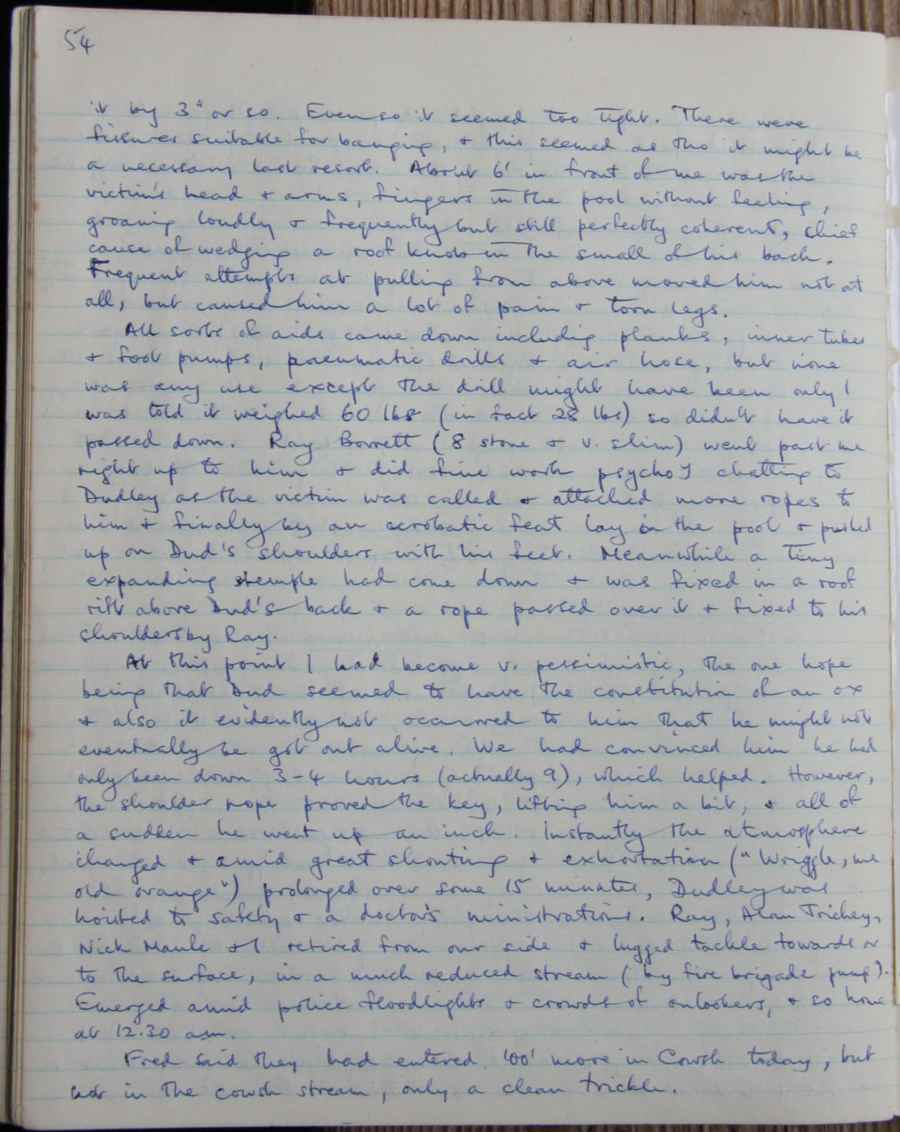 54
it by 3" or so. Even so it seemed too tight. There were
fissures suitable for banging, & this seemed as tho it might be
a necessary last resort. About 6' in front of me was the
victim's head & arms, fingers in the pool without feeling,
groaning loudly & frequently but still perfectly coherent, chief
cause of wedging a roof knob in the small of his back.
Frequent attempts at pulling from above moved him not at
all, but caused him a lot of pain & torn legs.
All sorts of aids came down including planks, inner tubes
& foot pumps, pneumatic drills & air hose, but none
was any use except the drill might have been only I
was told it weighed 60 lbs (in fact 28 lbs) so didn't have it
passed down. Ray Barrett (8 stone & v. slim) went past me
right up to him & did fine work psychol chatting to
Dudley as the victim was called & attached more ropes to
him & finally by an acrobatic feat lay in the pool & pushed
up on Dud's shoulders with his feet. Meanwhile a tiny
expanding stemple had come down & was fixed in a roof
rift above Dud's back & a rope passed over it & fixed to his
shoulders by Ray.
At this point I had become v. pessimistic, the one hope
being that Dud seemed to have the constitution of an ox
& also it evidently not occurred to him that he might not
eventually be got out alive. We had convinced him he had
only been down 3-4 hours (actually 9), which helped. However,
the shoulder rope proved the key, lifting him a bit, & all of
a sudden he went up an inch. Instantly the atmosphere
changed & amid great shouting & exhortation ("Wriggle, me
old orange") prolonged over some 15 minutes, Dudley was
hoisted to safety & a doctor's ministrations. Ray, Alan Trickey,
Nick Maule & I retired from our side & lugged tackle towards or
to the surface, in a much reduced stream (by fire brigade pump).
Emerged amid police floodlights & crowds of onlookers, & so home
at 12.30 am.
Fred said they had entered 100' more in Cowsh today, but
not in the cowsh stream, only a clean trickle.